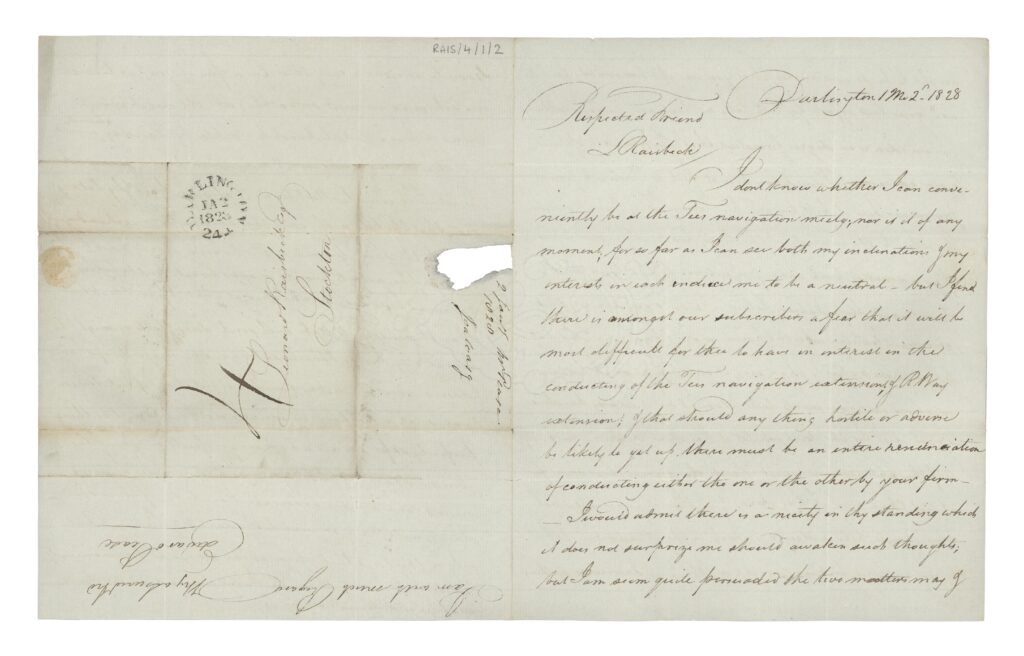 RAIS/4/1/2
Darlington 1 Mo 2d. 1828
Respected Friend
L Raisbeck/
I dont know whether I can conve-
niently be at the Tees navigation meetg; nor is it of any
moment, for so far as I can see both my inclinations & my
interests in each induce me to be a neutral - but I find
there is amongst our subscribers a fear that it will be
most difficult for thee to have an interest in the
conducting of the Tees navigation extension, & R. Way
extension; & that should any thing hostile or adverse
be likely to get up, there must be an entire renunciation
of conducting either the one or the other by your firm -
- I would admit there is a nicety in thy standing which
it does not surprize me should awaken such thoughts,
but I am quite persuaded the two matters may &
DARLINGTON
JA 2
1828
241
Leonard Raisbeck Esq
Stockton
4
2 Jany
1828
Pease
Railway
I am with much Regard
Thy assured frd
Edward Pease